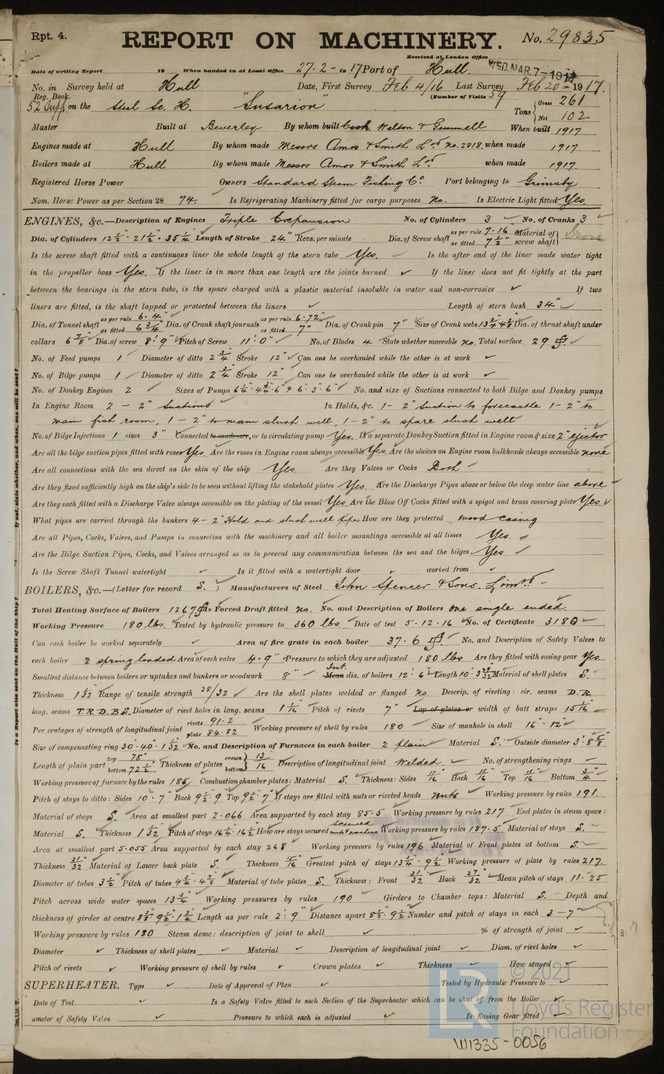 Rpt. 4.
REPORT ON MACHINERY.
No. 29835
Received at London Office WED. MAR. 7-1917
Date of writing Report 19 When handed in at Local Office 27-2-1917 Port of Hull.
No. in Survey held at Hull Date, First Survey Feb 4/16 Last Survey Feb 20-1917.
Reg. Book. (Number of Visits 59
52 Supp. on the Steel Sc. K. "Susarion Tons Gross 261 Net 102
Master Built at Beverley By whom built Cook, Welton & Gemmell When built 1917
Engines made at Hull By whom made Messrs Amos & Smith Ld No. 2918, when made 1917
Boilers made at Hull By whom made Messrs Amos & Smith Ld when made 1917.
Registered Horse Power Owners Standard Steam Fishing Co. Port belonging to Grimsby
Nom. Horse Power as per Section 28 74. Is Refrigerating Machinery fitted for cargo purposes No. Is Electric Light fitted Yes.
ENGINES, &c.—Description of Engines Triple Expansion No. of Cylinders 3 No. of Cranks 3
Dia. of Cylinders 12½"-21½"-35¼" Length of Stroke 24" Revs. per minute Dia. of Screw shaft as per rule 7.16 as fitted 7½" Material of screw shaft
Is the screw shaft fitted with a continuous liner the whole length of the stern tube Yes. Is the after end of the liner made water tight
in the propeller boss Yes. If the liner is in more than one length are the joints burned If the liner does not fit tightly at the part
between the bearings in the stern tube, is the space charged with a plastic material insoluble in water and non-corrosive If two
liners are fitted, is the shaft lapped or protected between the liners Length of stern bush 34"
Dia. of Tunnel shaft as per rule 6.4" as fitted 6¾" Dia. of Crank shaft journals as per rule 6.72" as fitted 7" Dia. of Crank pin 7" Size of Crank webs 13¾"4½" Dia. of thrust shaft under
collars Dia. of screw 8'.9" Pitch of Screw 11'.0" No. of Blades 4 State whether moveable No. Total surface 29 ft.
No. of Feed pumps 1 Diameter of ditto 2¾" Stroke 12" Can one be overhauled while the other is at work
No. of Bilge pumps 1 Diameter of ditto 2¾" Stroke 12" Can one be overhauled while the other is at work
No. of Donkey Engines 2 Sizes of Pumps No. and size of Suctions connected to both Bilge and Donkey pumps
In Engine Room 2-2" Suctions In Holds, &c. 1-2" Suction to forecastle 1-2" to
main fish room, 1-2" to main slush well, 1-2" to spare slush well
No. of Bilge Injections 1 sizes 3" Connected to condenser, or to circulating pump Yes. Is a separate Donkey Suction fitted in Engine room & size 2" ejector
Are all the bilge suction pipes fitted with roses Yes. Are the roses in Engine room always accessible Yes. Are the sluices on Engine room bulkheads always accessible none
Are all connections with the sea direct on the skin of the ship Yes. Are they Valves or Cocks Both
Are they fixed sufficiently high on the ship's side to be seen without lifting the stokehold plates Yes. Are the Discharge Pipes above or below the deep water line above
Are they each fitted with a Discharge Valve always accessible on the plating of the vessel Yes. Are the Blow Off Cocks fitted with a spigot and brass covering plate Yes.
What pipes are carried through the bunkers 4-2" Hold and slush well pipes How are they protected wood casing
Are all Pipes, Cocks, Valves, and Pumps in connection with the machinery and all boiler mountings accessible at all times Yes.
Are the Bilge Suction Pipes, Cocks, and Valves arranged so as to prevent any communication between the sea and the bilges Yes
Is the Screw Shaft Tunnel watertight Is it fitted with a watertight door worked from
BOILERS, &c.—(Letter for record S.) Manufacturers of Steel John Spencer & Sons. Limtd
Total Heating Surface of Boilers 1267 Is Forced Draft fitted No. No. and Description of Boilers one single ended.
Working Pressure 180 lbs. Tested by hydraulic pressure to 360 lbs Date of test 5-12-16 No. of Certificate 3180
Can each boiler be worked separately Area of fire grate in each boiler 37.6 No. and Description of Safety Valves to
each boiler 2 spring loaded Area of each valve 4.9" Pressure to which they are adjusted 180 lbs Are they fitted with easing gear Yes.
Smallest distance between boilers or uptakes and bunkers or woodwork 8" Mean dia. of boilers Length Material of shell plates S.
Thickness 1 3/32 Range of tensile strength 28/32 Are the shell plates welded or flanged No. Descrip. of riveting: cir. seams D.R.
long. seams T.R.D.B.S. Diameter of rivet holes in long. seams 1 1/16" Pitch of rivets 7" Lap of plates or width of butt straps 15 1/16
Per centages of strength of longitudinal joint rivets 91.2 plate 84.82 Working pressure of shell by rules 180 Size of manhole in shell 16" . 12"
Size of compensating ring No. and Description of Furnaces in each boiler 2 plain Material S. Outside diameter
Length of plain part top 78" bottom 72½" Thickness of plates crown 13/16 bottom Description of longitudinal joint Welded. No. of strengthening rings
Working pressure of furnace by the rules 185 Combustion chamber plates: Material S. Thickness: Sides 11/16 Back 11/16 Top 11/16 Bottom
Pitch of stays to ditto: Sides 10.7 Back 9½.9 Top 9½.7 If stays are fitted with nuts or riveted heads nuts Working pressure by rules 191.
Material of stays S. Area at smallest part 2.066 Area supported by each stay 85.5 Working pressure by rules 217 End plates in steam space:
Material S. Thickness 1 3/32 Pitch of stays 16½.16½ How are stays secured Working pressure by rules 187.5 Material of stays S.
Area at smallest part 5.055 Area supported by each stay 268 Working pressure by rules 196 Material of Front plates at bottom S.
Thickness 31/32 Material of Lower back plate S. Thickness Greatest pitch of stays 13¼.9½ Working pressure of plate by rules 217.
Diameter of tubes 3½" Pitch of tubes Material of tube plates S. Thickness: Front 31/32 Back 27/32 Mean pitch of stays 11.25
Pitch across wide water spaces 13¾" Working pressures by rules 190 Girders to Chamber tops: Material S. Depth and
thickness of girder at centre Length as per rule 2'.9" Distance apart Number and pitch of stays in each 3-7"
Working pressure by rules 180 Steam dome: description of joint to shell % of strength of joint
Diameter Thickness of shell plates Material Description of longitudinal joint Diam. of rivet holes
Pitch of rivets Working pressure of shell by rules Crown plates Thickness How stayed
SUPERHEATER. Type Date of Approval of Plan Tested by Hydraulic Pressure to
Date of Test Is a Safety Valve fitted to each Section of the Superheater which can be shut off from the Boiler
ameter of Safety Valve Pressure to which each is adjusted Is Easing Gear fitted
© 2021
Lloyd's Register
Foundation
W1335-0056